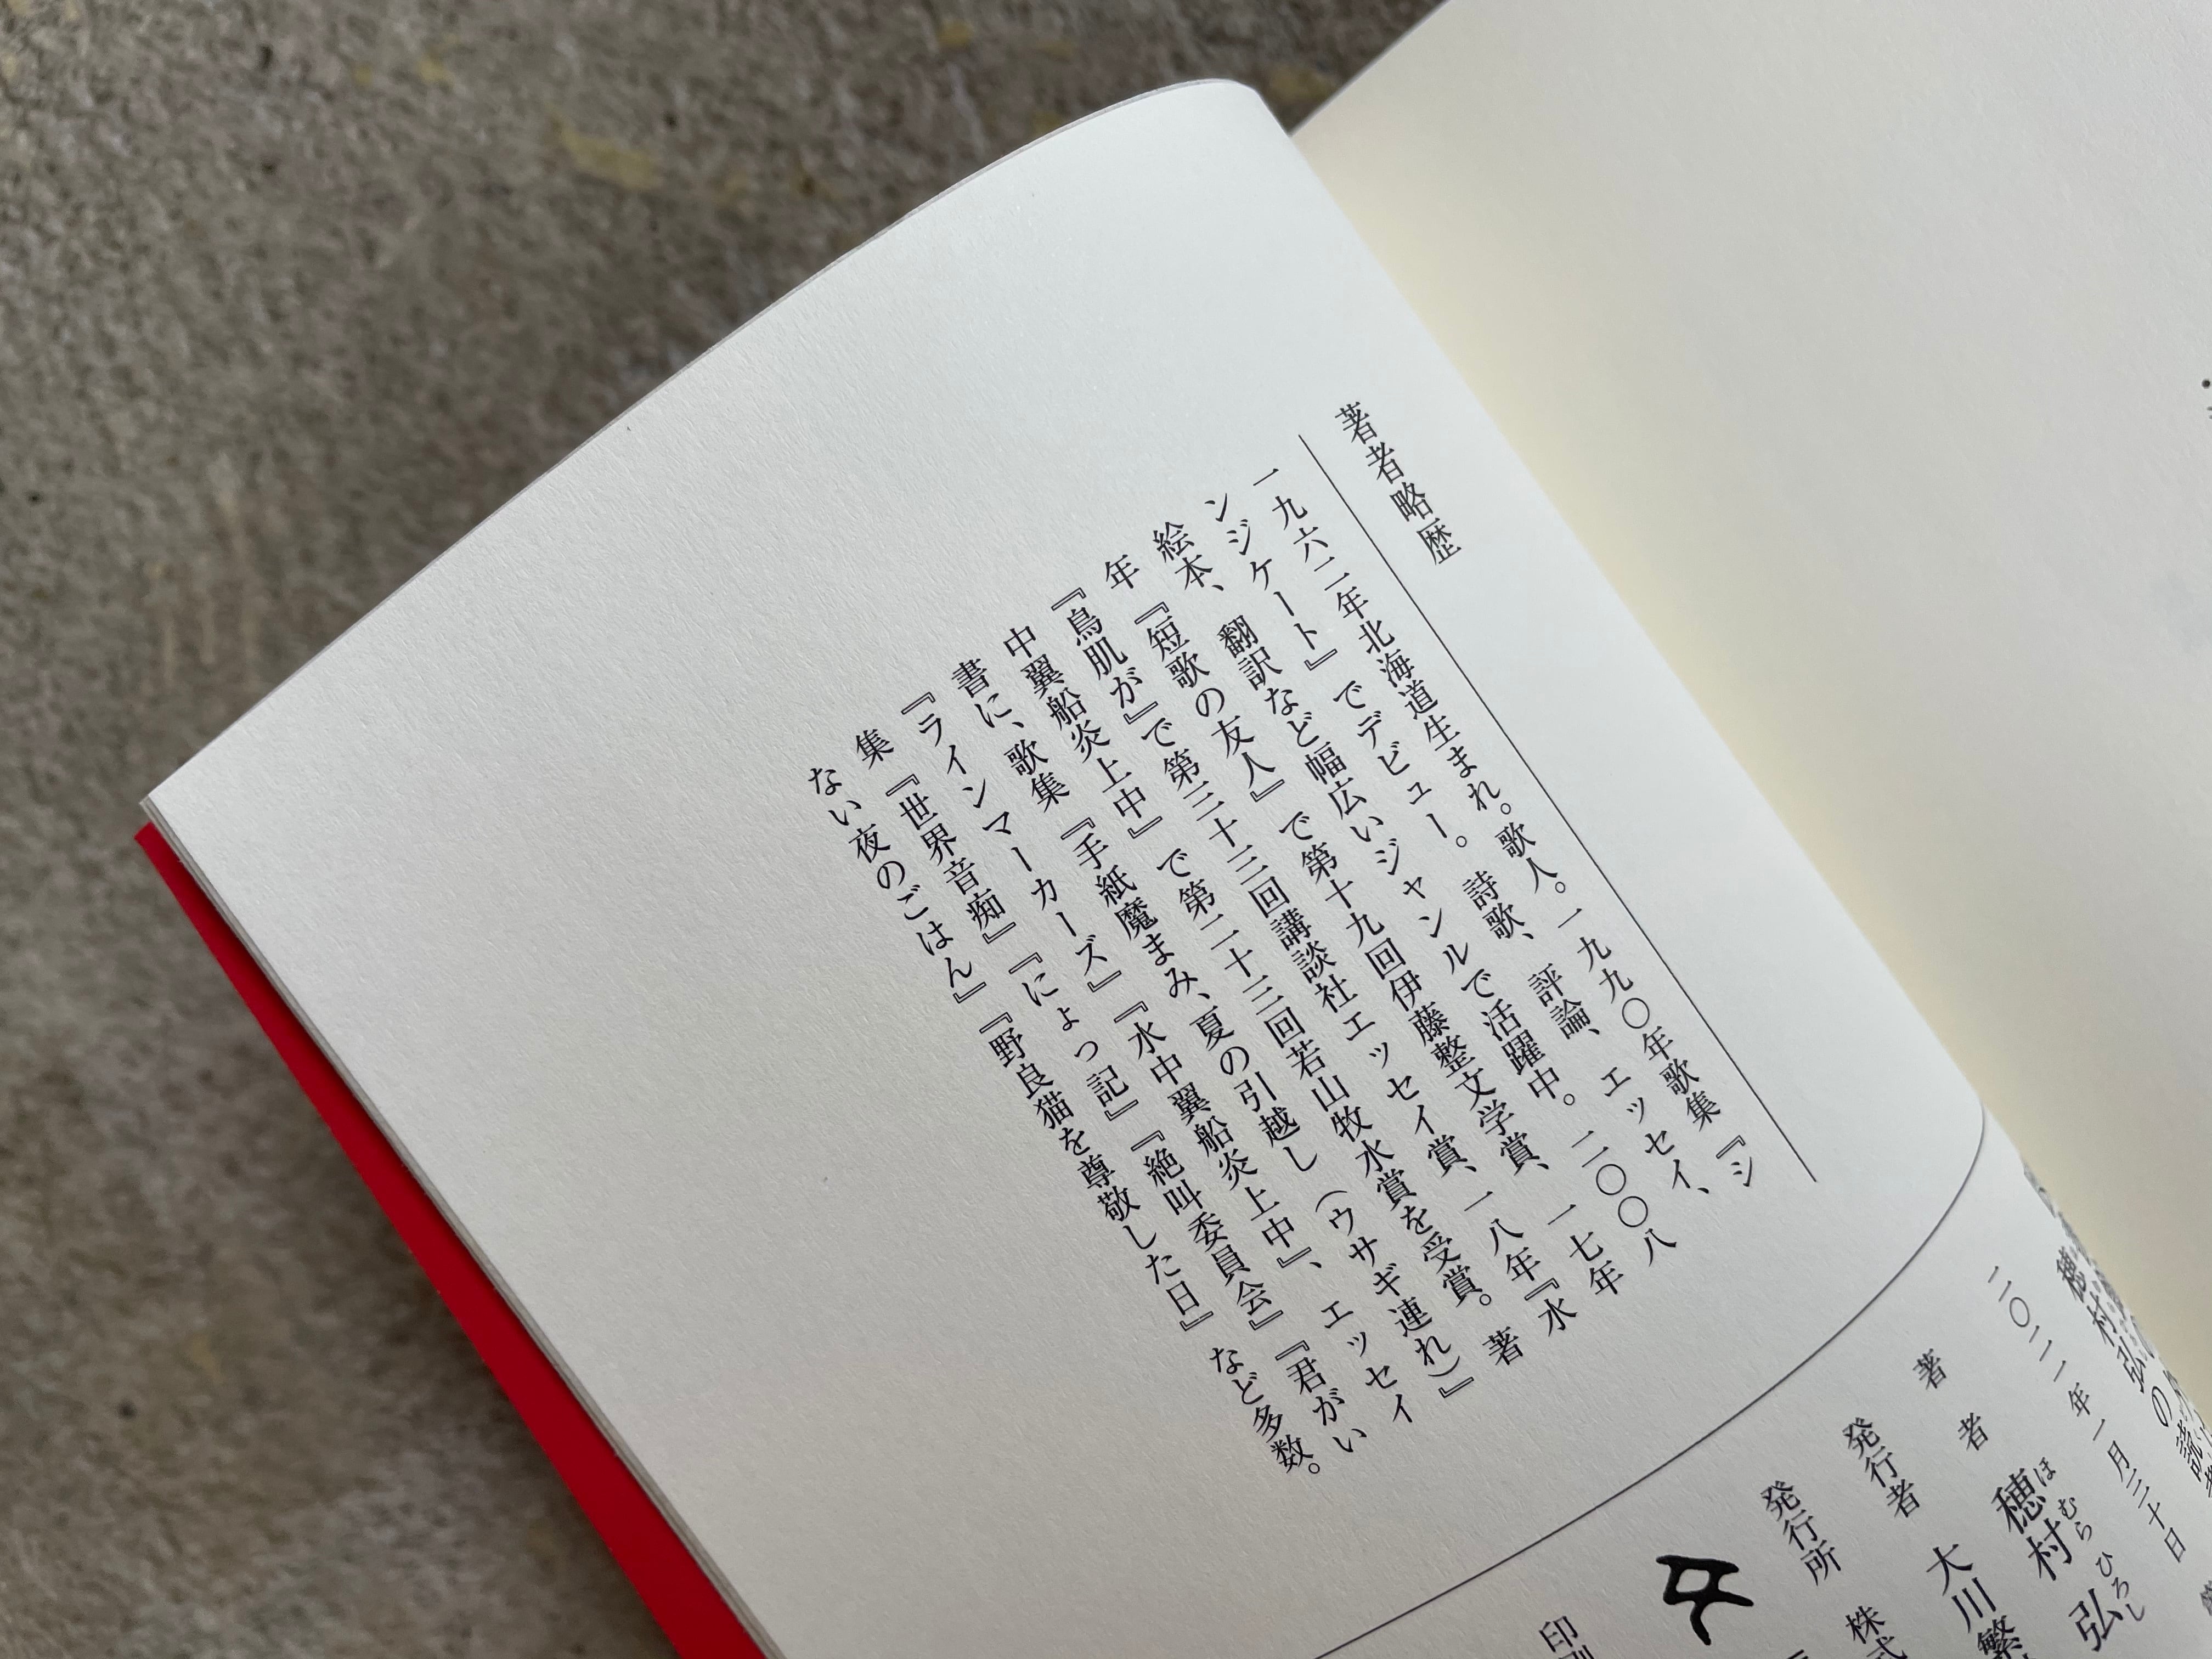 著者略歴
一九六二年北海道生まれ。歌人。一九九〇年歌集『シ
ンジケート』でデビュー。詩歌、評論、エッセイ、
絵本、翻訳など幅広いジャンルで活躍中。二〇〇八
年『短歌の友人』で第十九回伊藤整文学賞、一七年
『鳥肌が』で第三十三回講談社エッセイ賞、一八年『水
中翼船炎上中』で第二十三回若山牧水賞を受賞。著
書に、歌集『手紙魔まみ、夏の引越し（ウサギ連れ）』
『ラインマーカーズ』『水中翼船炎上中』、エッセイ
集『世界音痴』『にょっ記』『絶叫委員会』『君がい
ない夜のごはん』『野良猫を尊敬した日』など多数。
穂村弘の
二〇二一年一月三十日
著者 穂村弘
ほむらひろし
発行者 大川繁
発行所 株式
印刷